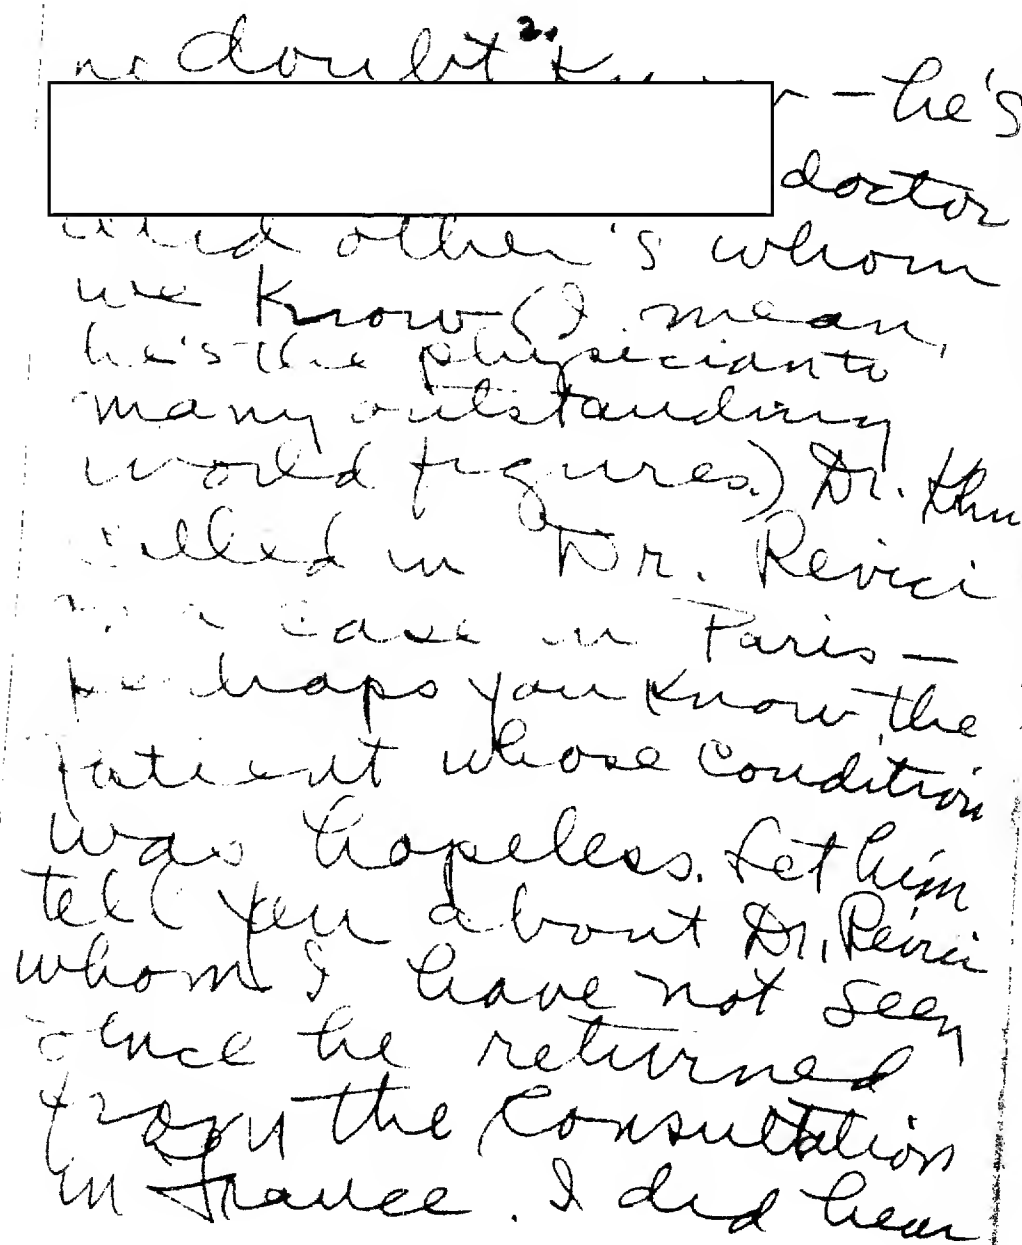 2.
no doubt — he's
doctor
and other's whom
we know (I mean,
he's the physician to
many outstanding
world figures.) Dr.
called in Dr. Revici
a case in Paris —
perhaps you know the
patient whose condition
was hopeless. Let him
tell you about Dr. Revici
whom I have not seen
since he returned
from the consultation
in France. I did hear